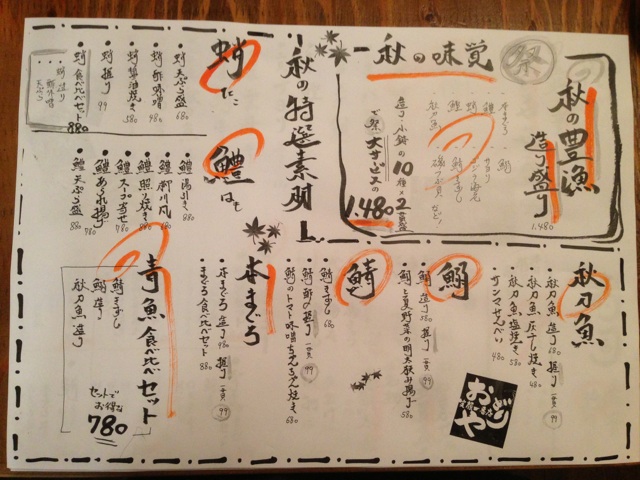 秋の味覚
祭
秋の豊漁
造り盛り
1,480
本まぐろ
小鉢の10種×2
で祭大サービスの
1,480
秋の特選素材
蛸 たこ
・蛸天ぷら盛 680
・蛸酢味噌 480
・蛸醤油焼き 580
・蛸握り 99
・蛸食べ比べセット 880
蛸造り
天ぷら
鱧 はも
・鱧湯引き 880
・鱧柳川風 880
・鱧照り焼き 780
・鱧スープ寄せ 780
・鱧あられ揚げ 780
・鱧天ぷら盛 880
秋刀魚
・秋刀魚造り 680 握り 一貫 99
・秋刀魚灰干し焼き 480
・秋刀魚塩焼き 580
・サンマせんべい 480
鰯
・鰯造り 580 握り 一貫 99
・鰯と夏野菜の明太挟み揚げ 580
鯖
・鯖きずし 680
・鯖酢〆握り 一貫 99
・鯖のトマト味噌ちゃんちゃん焼き 680
本まぐろ
・本まぐろ造り 980 握り 一貫 99
・まぐろ食べ比べセット 880
青魚食べ比べセット
鯖きずし
鰯造り
秋刀魚造り
セットで
お得な
780
おどりや